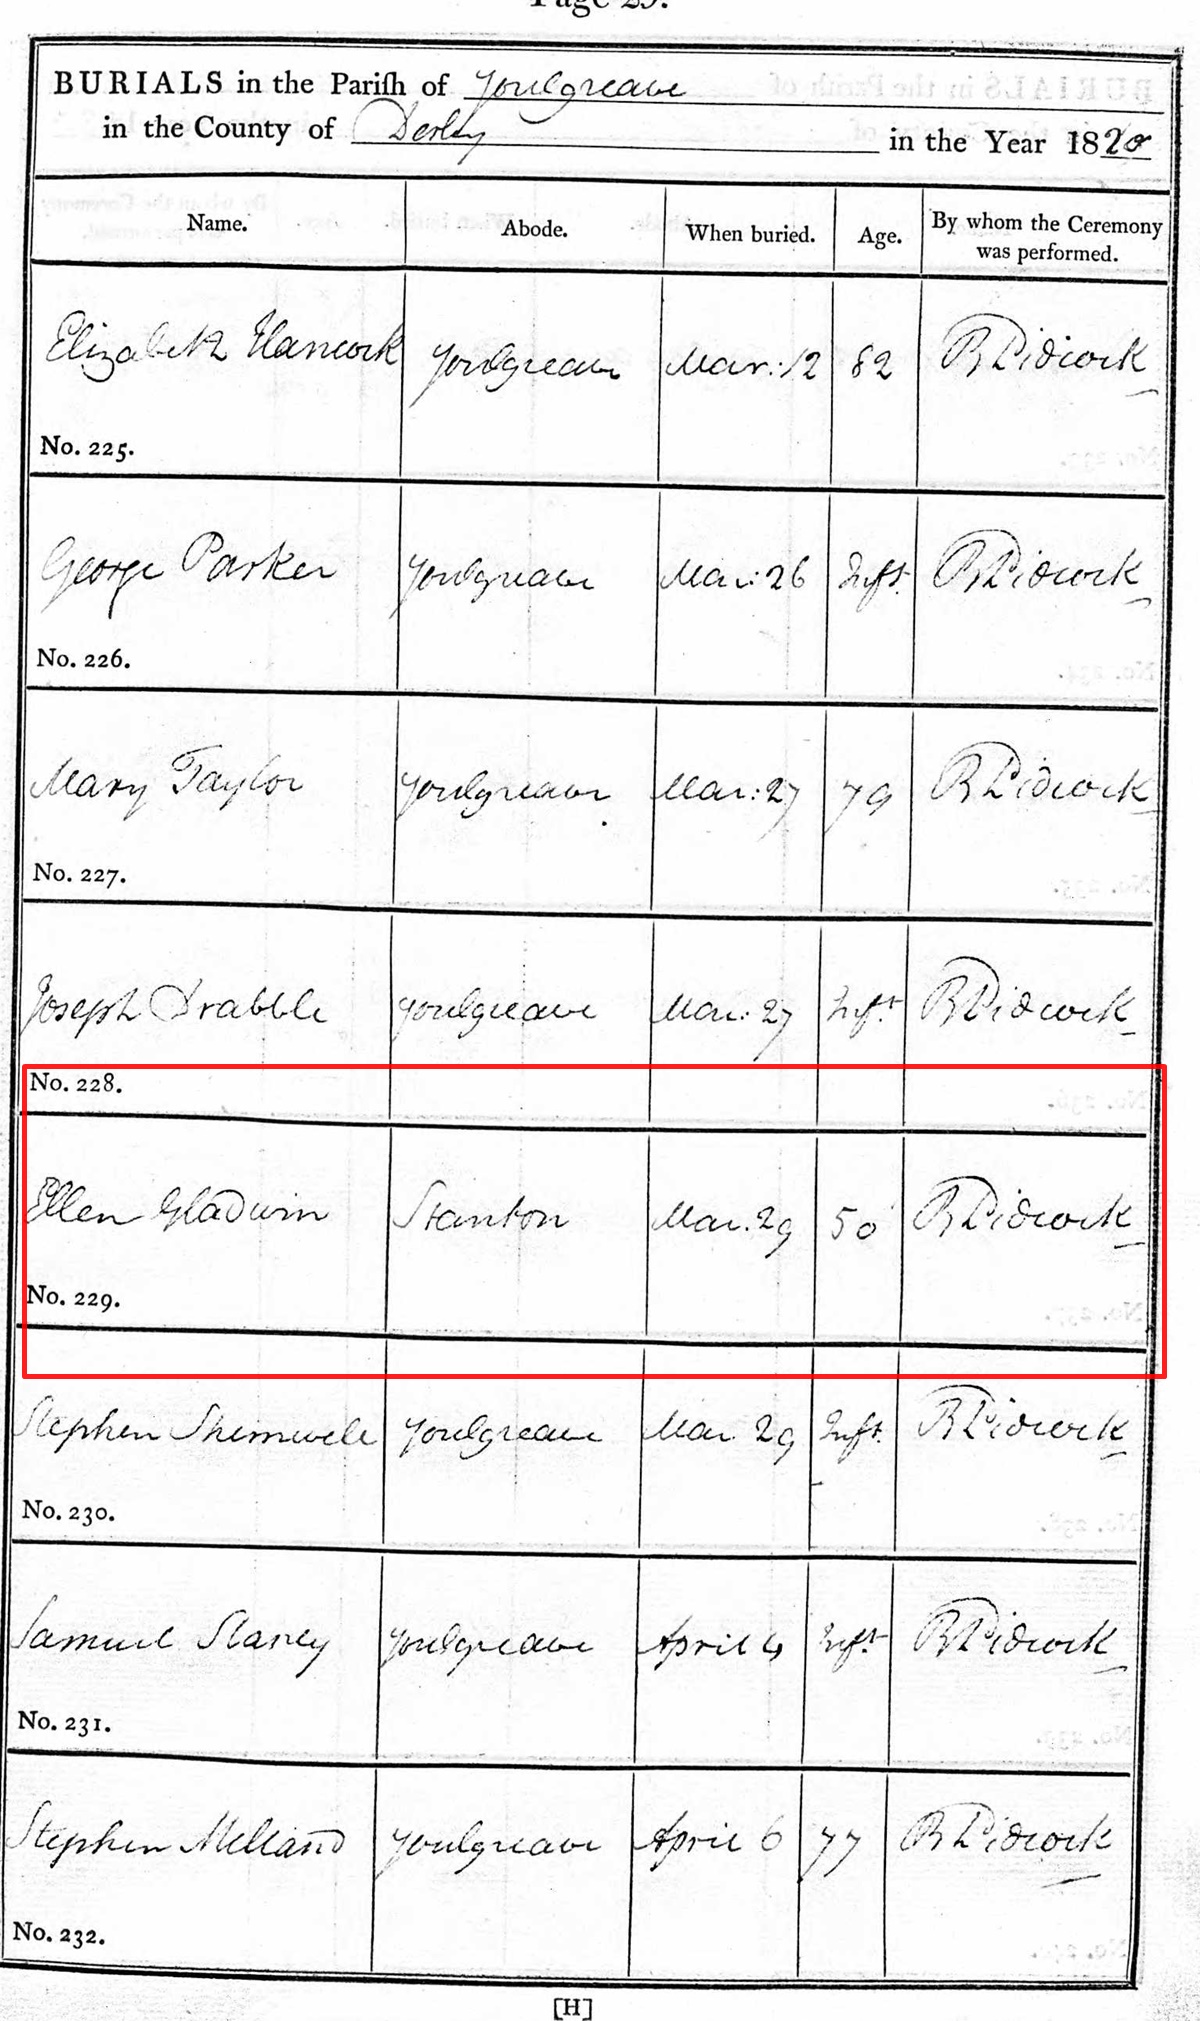 Page 29.
BURIALS in the Parish of Youlgreave
in the County of Derby in the Year 1820
Name. Abode. When buried. Age. By whom the Ceremony was performed.
Elizabeth Hancock Youlgreave Mar: 12 82 B Pidcock
No. 225.
George Parker Youlgreave Mar: 26 Inft. B Pidcock
No. 226.
Mary Taylor Youlgreave Mar: 27 79 B Pidcock
No. 227.
Joseph Drabble Youlgreave Mar: 27 Inft. B Pidcock
No. 228.
Ellen Gladwin Stanton Mar. 29 50 B Pidcock
No. 229.
Stephen Shimwell Youlgreave Mar 29 Inft. B Pidcock
No. 230.
Samuel Slaney Youlgreave April 4 Inft B Pidcock
No. 231.
Stephen Melland Youlgreave April 6 77 B Pidcock
No. 232.
[H]